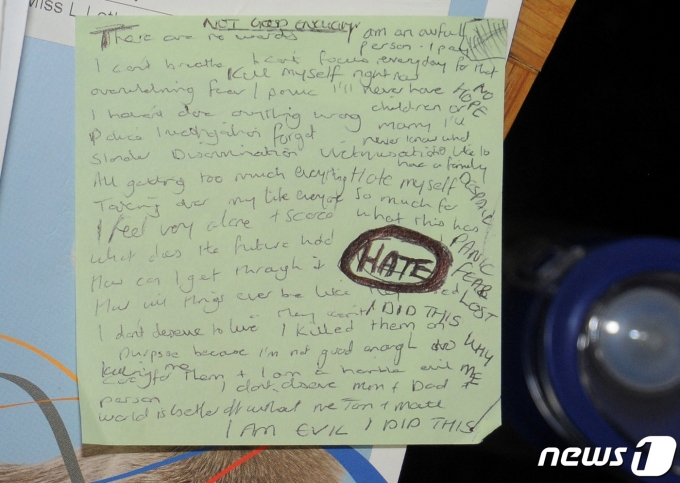 Miss L Let
NOT GOOD ENOUGH
There are no words
am an awful
person - I pay
everyday for that
I can't breathe I can't focus
Kill myself right now
overwhelming fear / panic I'll never have
NO
HOPE
children or
marry I'll
never know what
it's like to
have a family
I haven't done anything wrong
Police investigation forget
Slander Discrimination Victimisation
All getting too much everything
Hate myself
so much for
what this has
DESPAIR
PANIC
FEAR
LOST
Taking over my life everyone
I feel very alone + scared
What does the future hold
How can I get through it
HATE
How will things ever be like they
They won't
I DID THIS
WHY
ME
I don't deserve to live I killed them on
purpose because I'm not good enough
to care for them + I am a horrible evil
person
I don't deserve Mum + Dad +
world is better off without me
I AM EVIL I DID THIS
news1